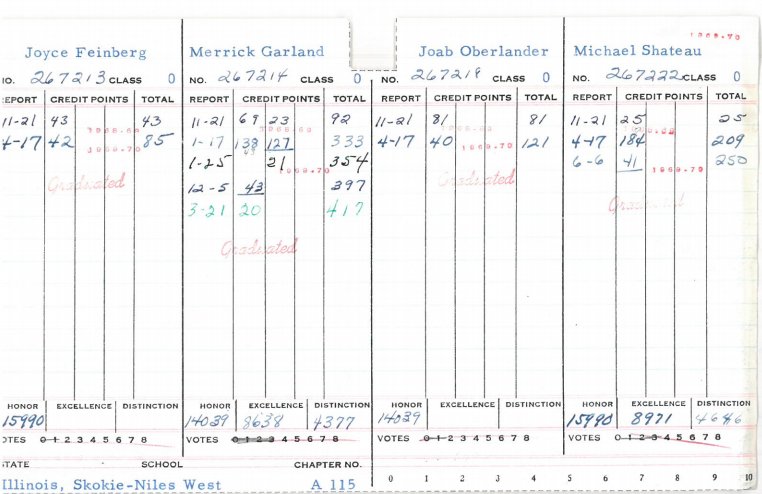 1969-70
Joyce Feinberg Merrick Garland Joab Oberlander Michael Shateau
NO. 267213 CLASS 0 NO. 267214 CLASS 0 NO. 267219 CLASS 0 NO. 267222 CLASS 0
REPORT CREDIT POINTS TOTAL REPORT CREDIT POINTS TOTAL REPORT CREDIT POINTS TOTAL REPORT CREDIT POINTS TOTAL
11-21 43 43 11-21 69 23 92 11-21 81 81 11-21 25 25
4-17 42 85 1-17 138 127 333 4-17 40 121 4-17 184 209
1969-70 1-25 21 354 1969-70 6-6 41 250
1969-70 1969-70
Graduated 12-5 43 397 Graduated
3-21 20 417 Graduated
Graduated
HONOR EXCELLENCE DISTINCTION HONOR EXCELLENCE DISTINCTION HONOR EXCELLENCE DISTINCTION HONOR EXCELLENCE DISTINCTION
15990 14039 8638 4377 14039 15990 8971 4646
OTES 0 1 2 3 4 5 6 7 8 VOTES 0 1 2 3 4 5 6 7 8 VOTES 0 1 2 3 4 5 6 7 8 VOTES 0 1 2 3 4 5 6 7 8
STATE SCHOOL CHAPTER NO.
Illinois, Skokie-Niles West A 115 0 1 2 3 4 5 6 7 8 9 10